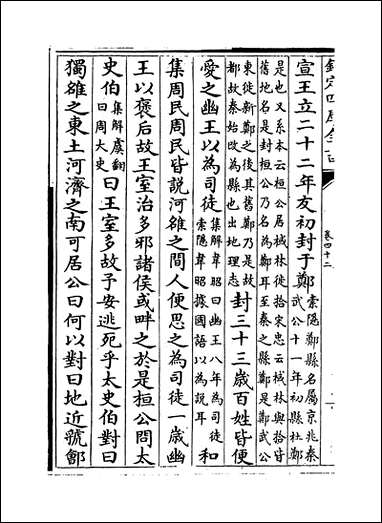 欽定四庫全書
卷四十二
宣王立二十二年友初封于鄭
索隱鄭縣名屬京兆秦
武公十一年初縣杜鄭
是也又系本云桓公居棫林徙拾宋忠云棫林與拾皆
舊地名是封桓公乃名為鄭耳至秦之縣鄭是鄭武公
東徙新鄭之後其舊鄭乃是故
都故秦始改為縣也出地理志
封三十三歲百姓皆便
愛之幽王以為司徒
集解韋昭曰幽王八年為司徒
索隱韋昭據國語以為說耳
和
集周民周民皆說河雒之間人便思之為司徒一歲幽
王以褒后故王室治多邪諸侯或畔之於是桓公問太
史伯
集解虞翻
曰周大史
曰王室多故予安逃死乎太史伯對曰
獨雒之東土河濟之南可居公曰何以對曰地近虢鄶